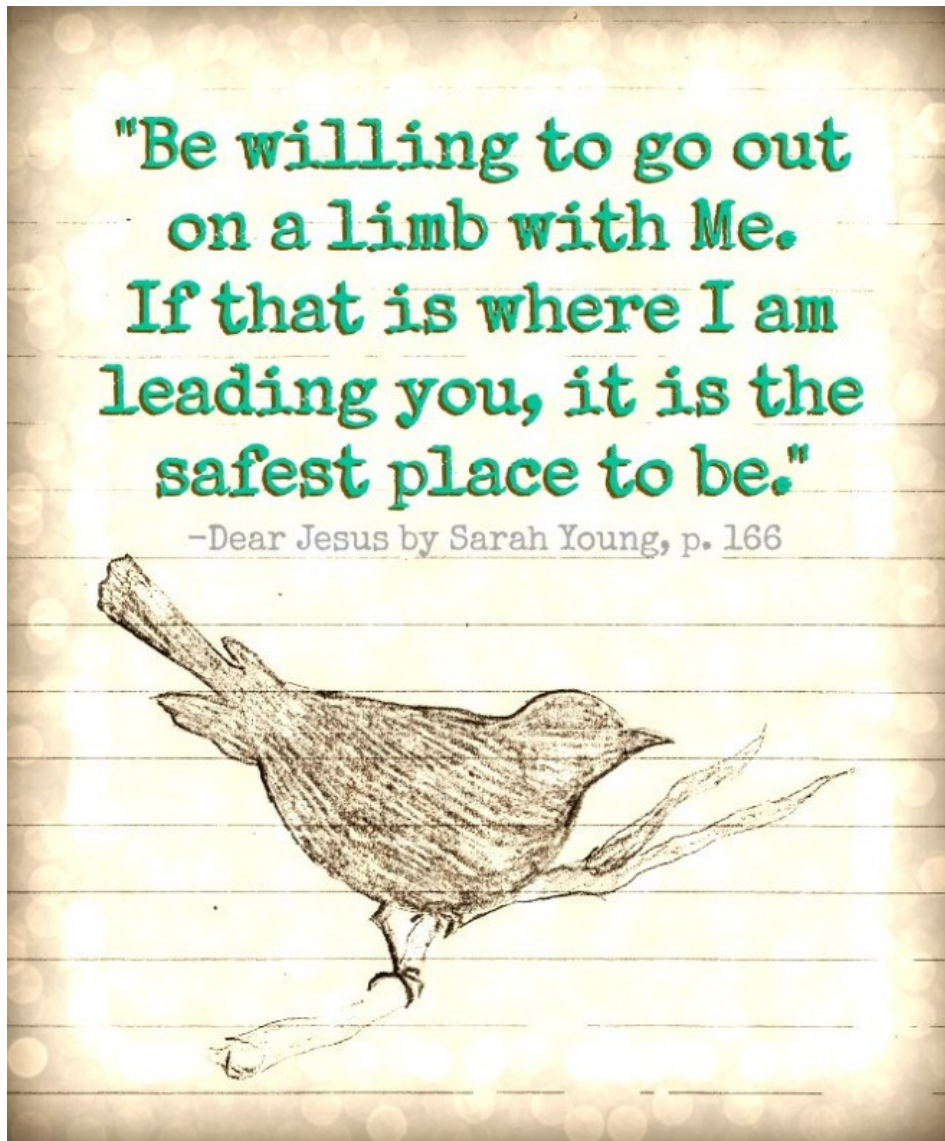 "Be willing to go out
on a limb with Me.
If that is where I am
leading you, it is the
safest place to be."
-Dear Jesus by Sarah Young, p. 166